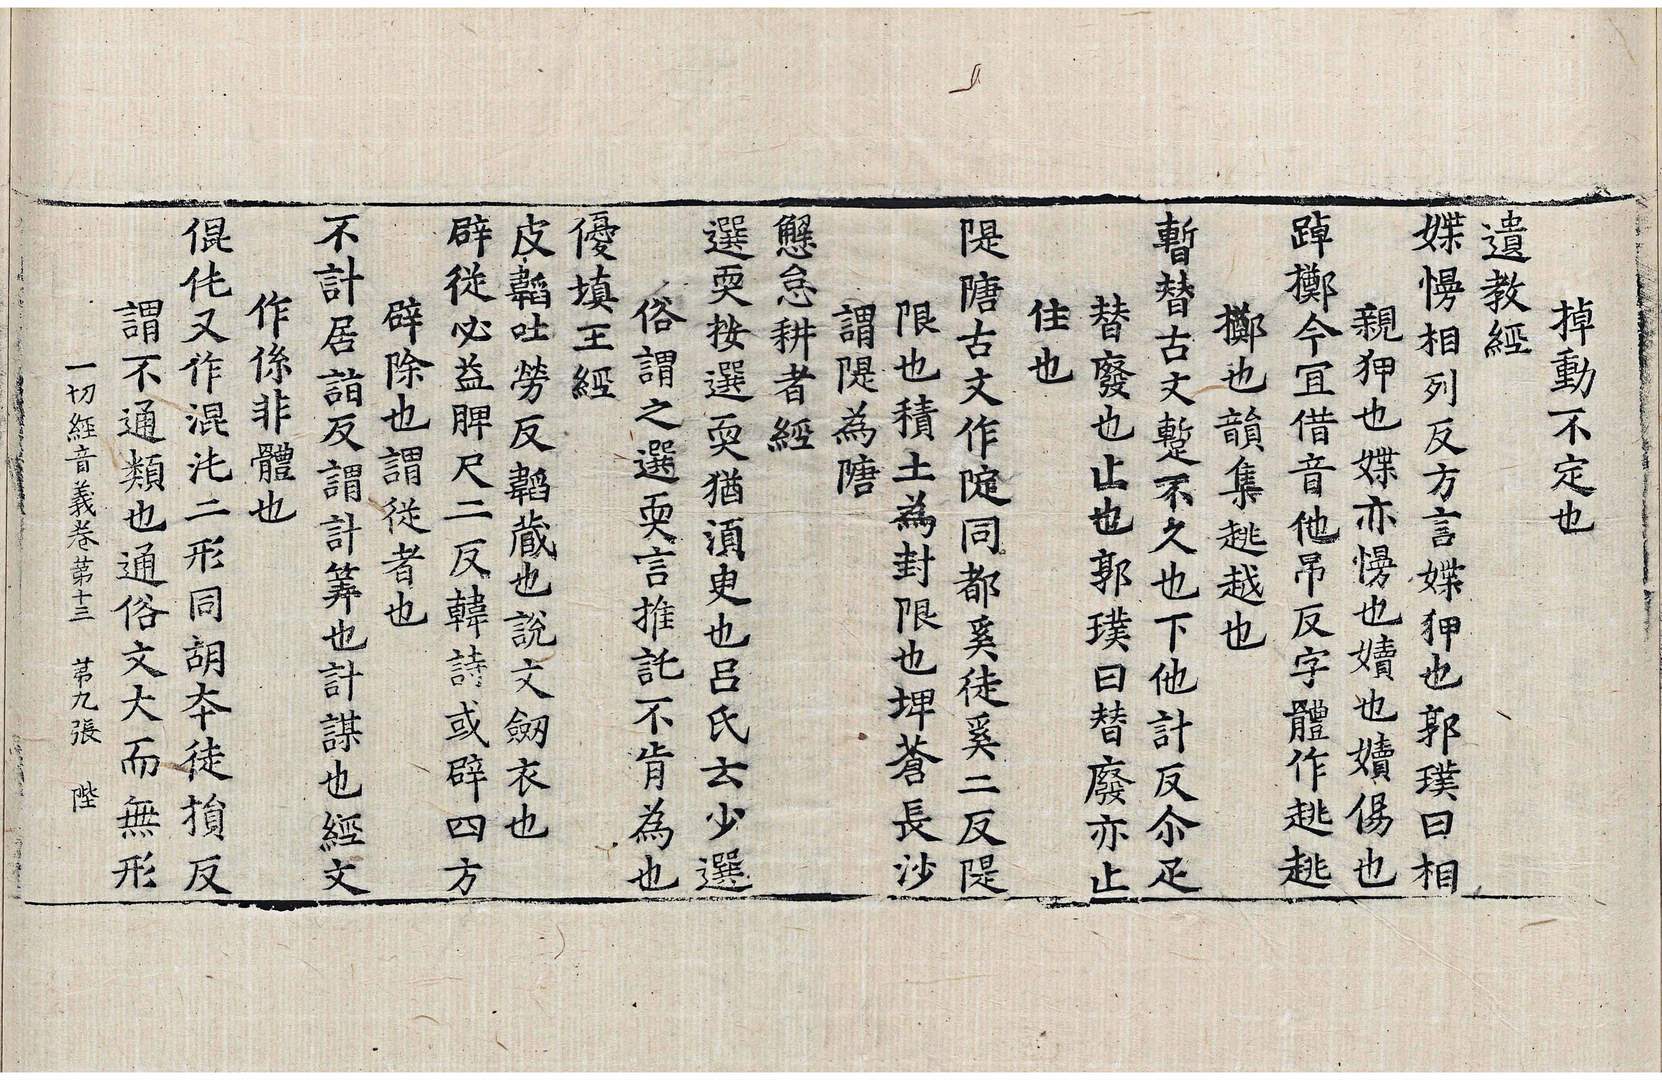 掉動不定也
遺教經
媟慢相列反方言媟狎也郭璞曰相
親狎也媟亦慢也嬻也嬻傷也
踔擲今冝借音他吊反字體作趒趒
擲也韻集趒越也
暫替古文蹔不久也下他計反尒疋
替廢也止也郭璞曰替廢亦止
住也
隄隄古文作隚同都奚徒奚二反隄
限也積土為封限也埤蒼長沙
謂隄為隚
懈怠耕者經
選耎按選耎猶湏臾也呂氏云少選
俗謂之選耎言推託不肯為也
優填王經
皮韜吐勞反韜藏也說文劒衣也
辟從必益脾尺二反韓詩或辟四方
辟除也謂從者也
不計居詣反謂計筭也計謀也經文
作係非體也
倱伅又作混沌二形同胡夲徒損反
謂不通類也通俗文大而無形
一切經音義卷第十三 第九張 陛